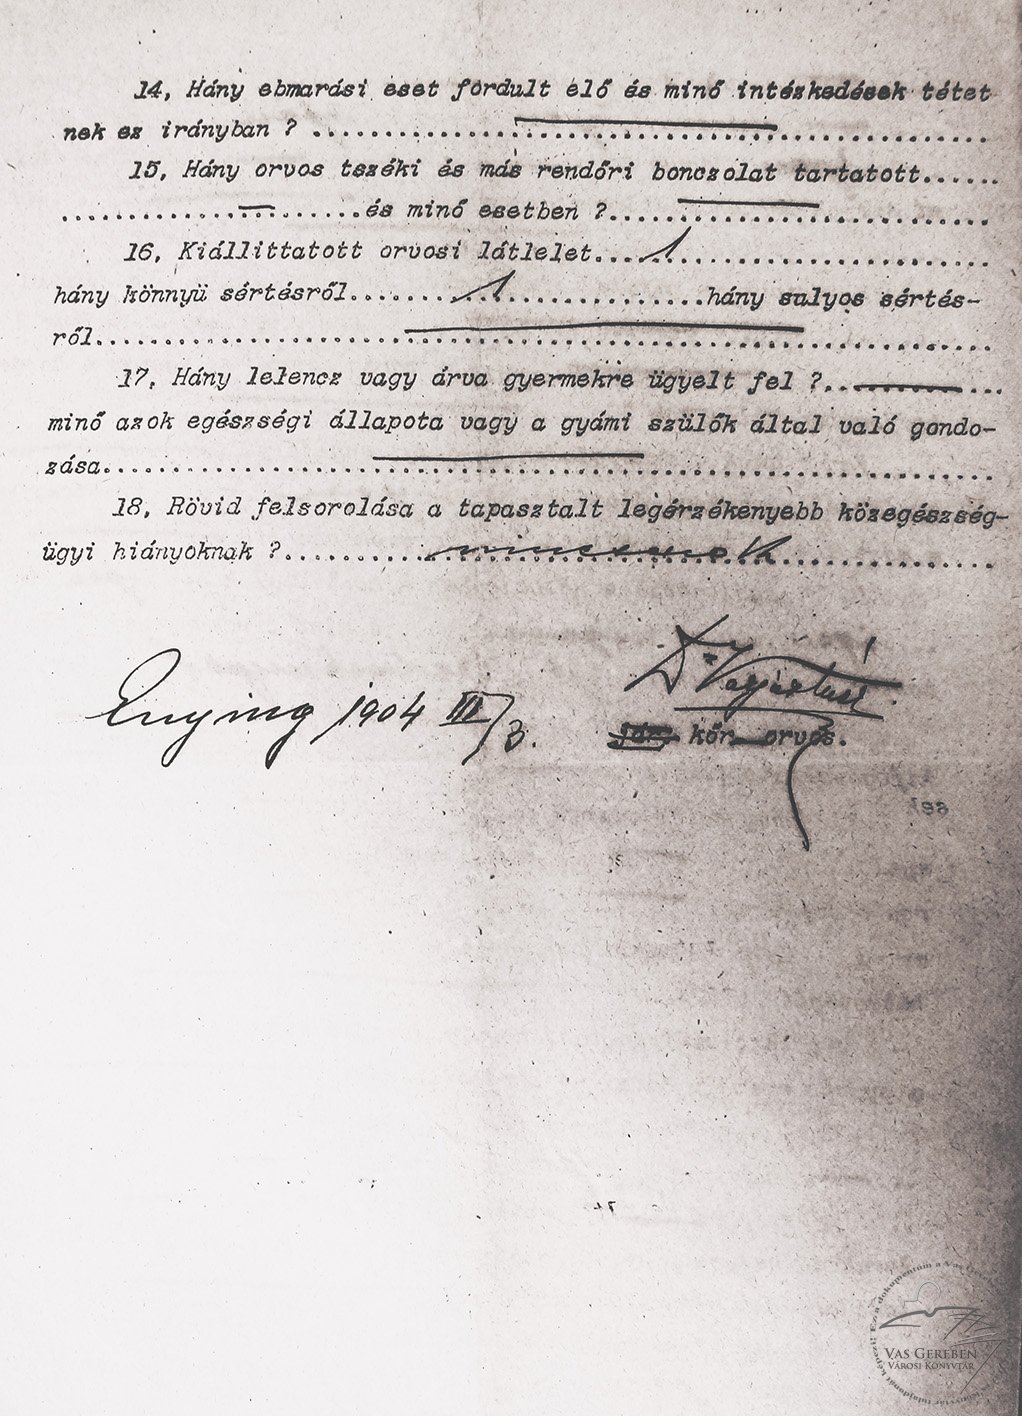 14, Hány ebmarási eset fordult elő és minő intézkedések tétet
nek ez irányban ? ............................................
15, Hány orvos tszéki és más rendőri bonczolat tartatott......
......................és minő esetben ?.......................
16, Kiállittatott orvosi látlelet....1........................
hány könnyü sértésről.........1..............hány sulyos sértés-
ről...........................................................
17, Hány lelencz vagy árva gyermekre ügyelt fel ?.............
minő azok egészségi állapota vagy a gyámi szülők által való gondo-
zása..........................................................
18, Rövid felsorolása a tapasztalt legérzékenyebb közegészség-
ügyi hiányoknak ?..........nincsenek..........................
Enying 1904 III/3.
Dr
jár. kör orvos.
VAS GEREBEN
VÁROSI KÖNYVTÁR